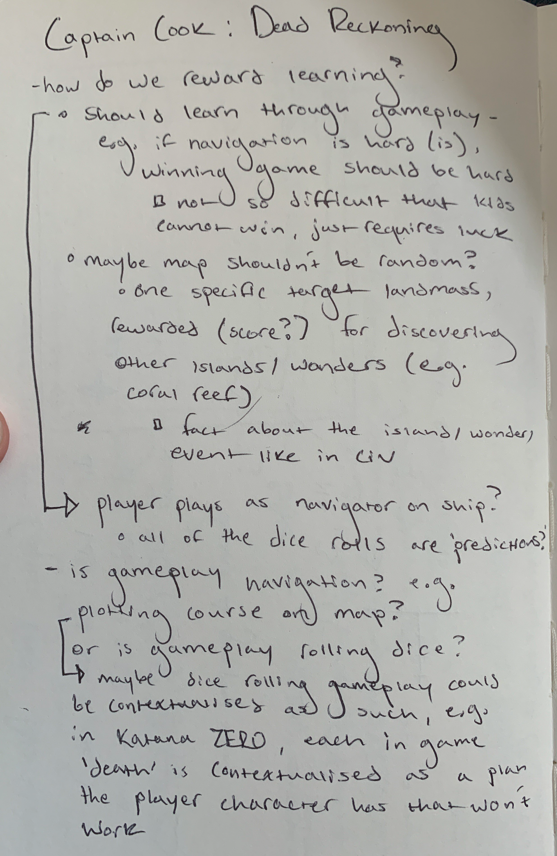 Captain Cook: Dead Reckoning
- how do we reward learning?
• should learn through gameplay -
e.g. if navigation is hard (is),
winning game should be hard
▫ not so difficult that kids
cannot win, just requires luck
• maybe map shouldn't be random?
• one specific target landmass,
rewarded (score?) for discovering
other islands/wonders (e.g.
coral reef)
▫ fact about the island/wonder,
event like in Civ
player plays as navigator on ship?
• all of the dice rolls are 'predictions?'
- is gameplay navigation? e.g.
plotting course on map?
or is gameplay rolling dice?
maybe dice rolling gameplay could
be contextualised as such, e.g.
in Katana ZERO, each in game
'death' is contextualised as a plan
the player character has that won't
work